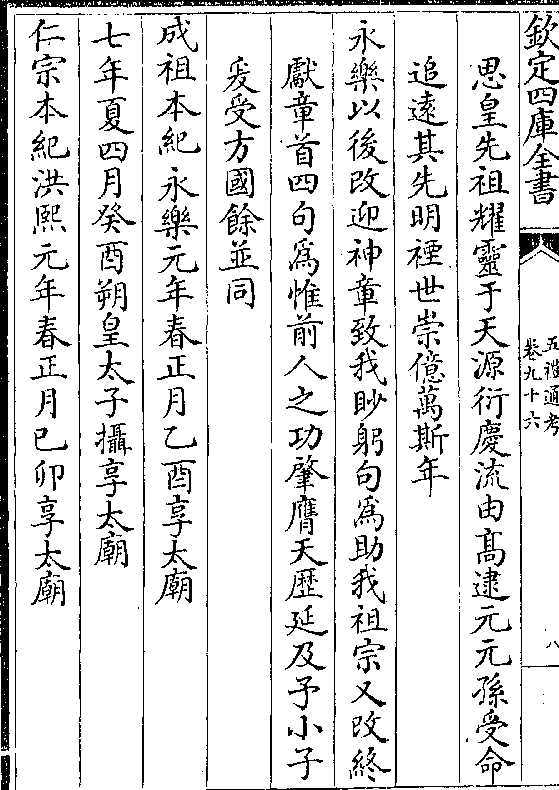 欽定四庫全書
五禮通考
卷九十六
八
思皇先祖耀靈于天源衍慶流由髙逮元元孫受命
追遠其先明禋世崇億萬斯年
永樂以後改迎神章致我眇躬句為助我祖宗又改終
獻章首四句為惟前人之功肇膺天歷延及予小子
爰受方國餘並同
成祖本紀永樂元年春正月乙酉享太廟
七年夏四月癸酉朔皇太子攝享太廟
仁宗本紀洪熙元年春正月己卯享太廟